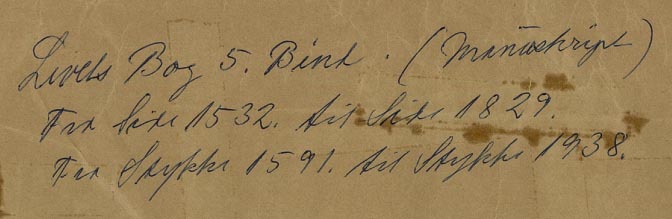 Livets Bog 5. Bind. (Manuskript)
Fra Side 1532. til Side 1829.
Fra Stykke 1591. til Stykke 1938.